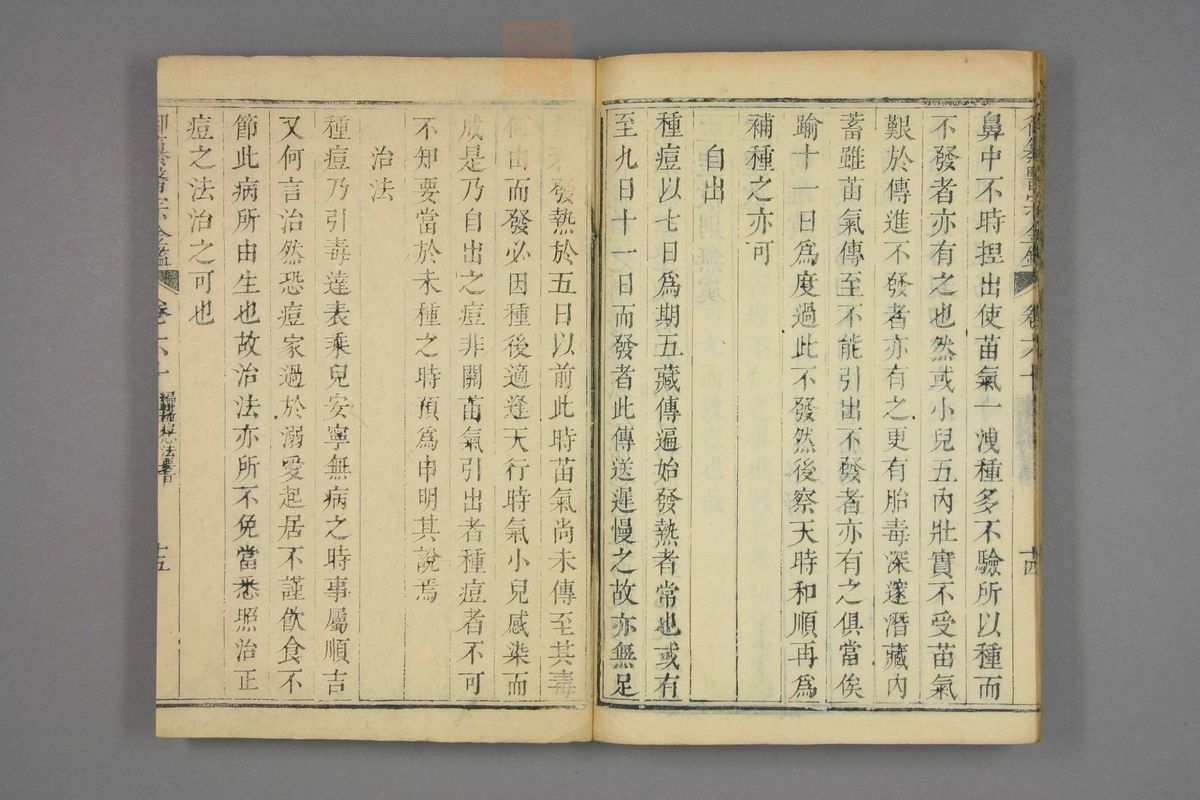 御纂醫宗金鑑 卷六十 十四
鼻中不時揑出使苗氣一洩種多不驗所以種而
不發者亦有之也然或小兒五內壯實不受苗氣
艱於傳進不發者亦有之更有胎毒深邃潛藏內
蓄雖苗氣傳至不能引出不發者亦有之俱當俟
踰十一日爲度過此不發然後察天時和順再爲
補種之亦可
自出
種痘以七日爲期五藏傳遍始發熱者常也或有
至九日十一日而發者此傳送遲慢之故亦無足
發熱於五日以前此時苗氣尚未傳至其毒
何由而發必因種後適逢天行時氣小兒感染而
成是乃自出之痘非關苗氣引出者種痘者不可
不知要當於未種之時預爲申明其說焉
治法
種痘乃引毒達表乘兒安寧無病之時事屬順吉
又何言治然恐痘家過於溺愛起居不謹飲食不
節此病所由生也故治法亦所不免當悉照治正
痘之法治之可也
御纂醫宗金鑑 卷六十 編輯種痘心法要旨 十五